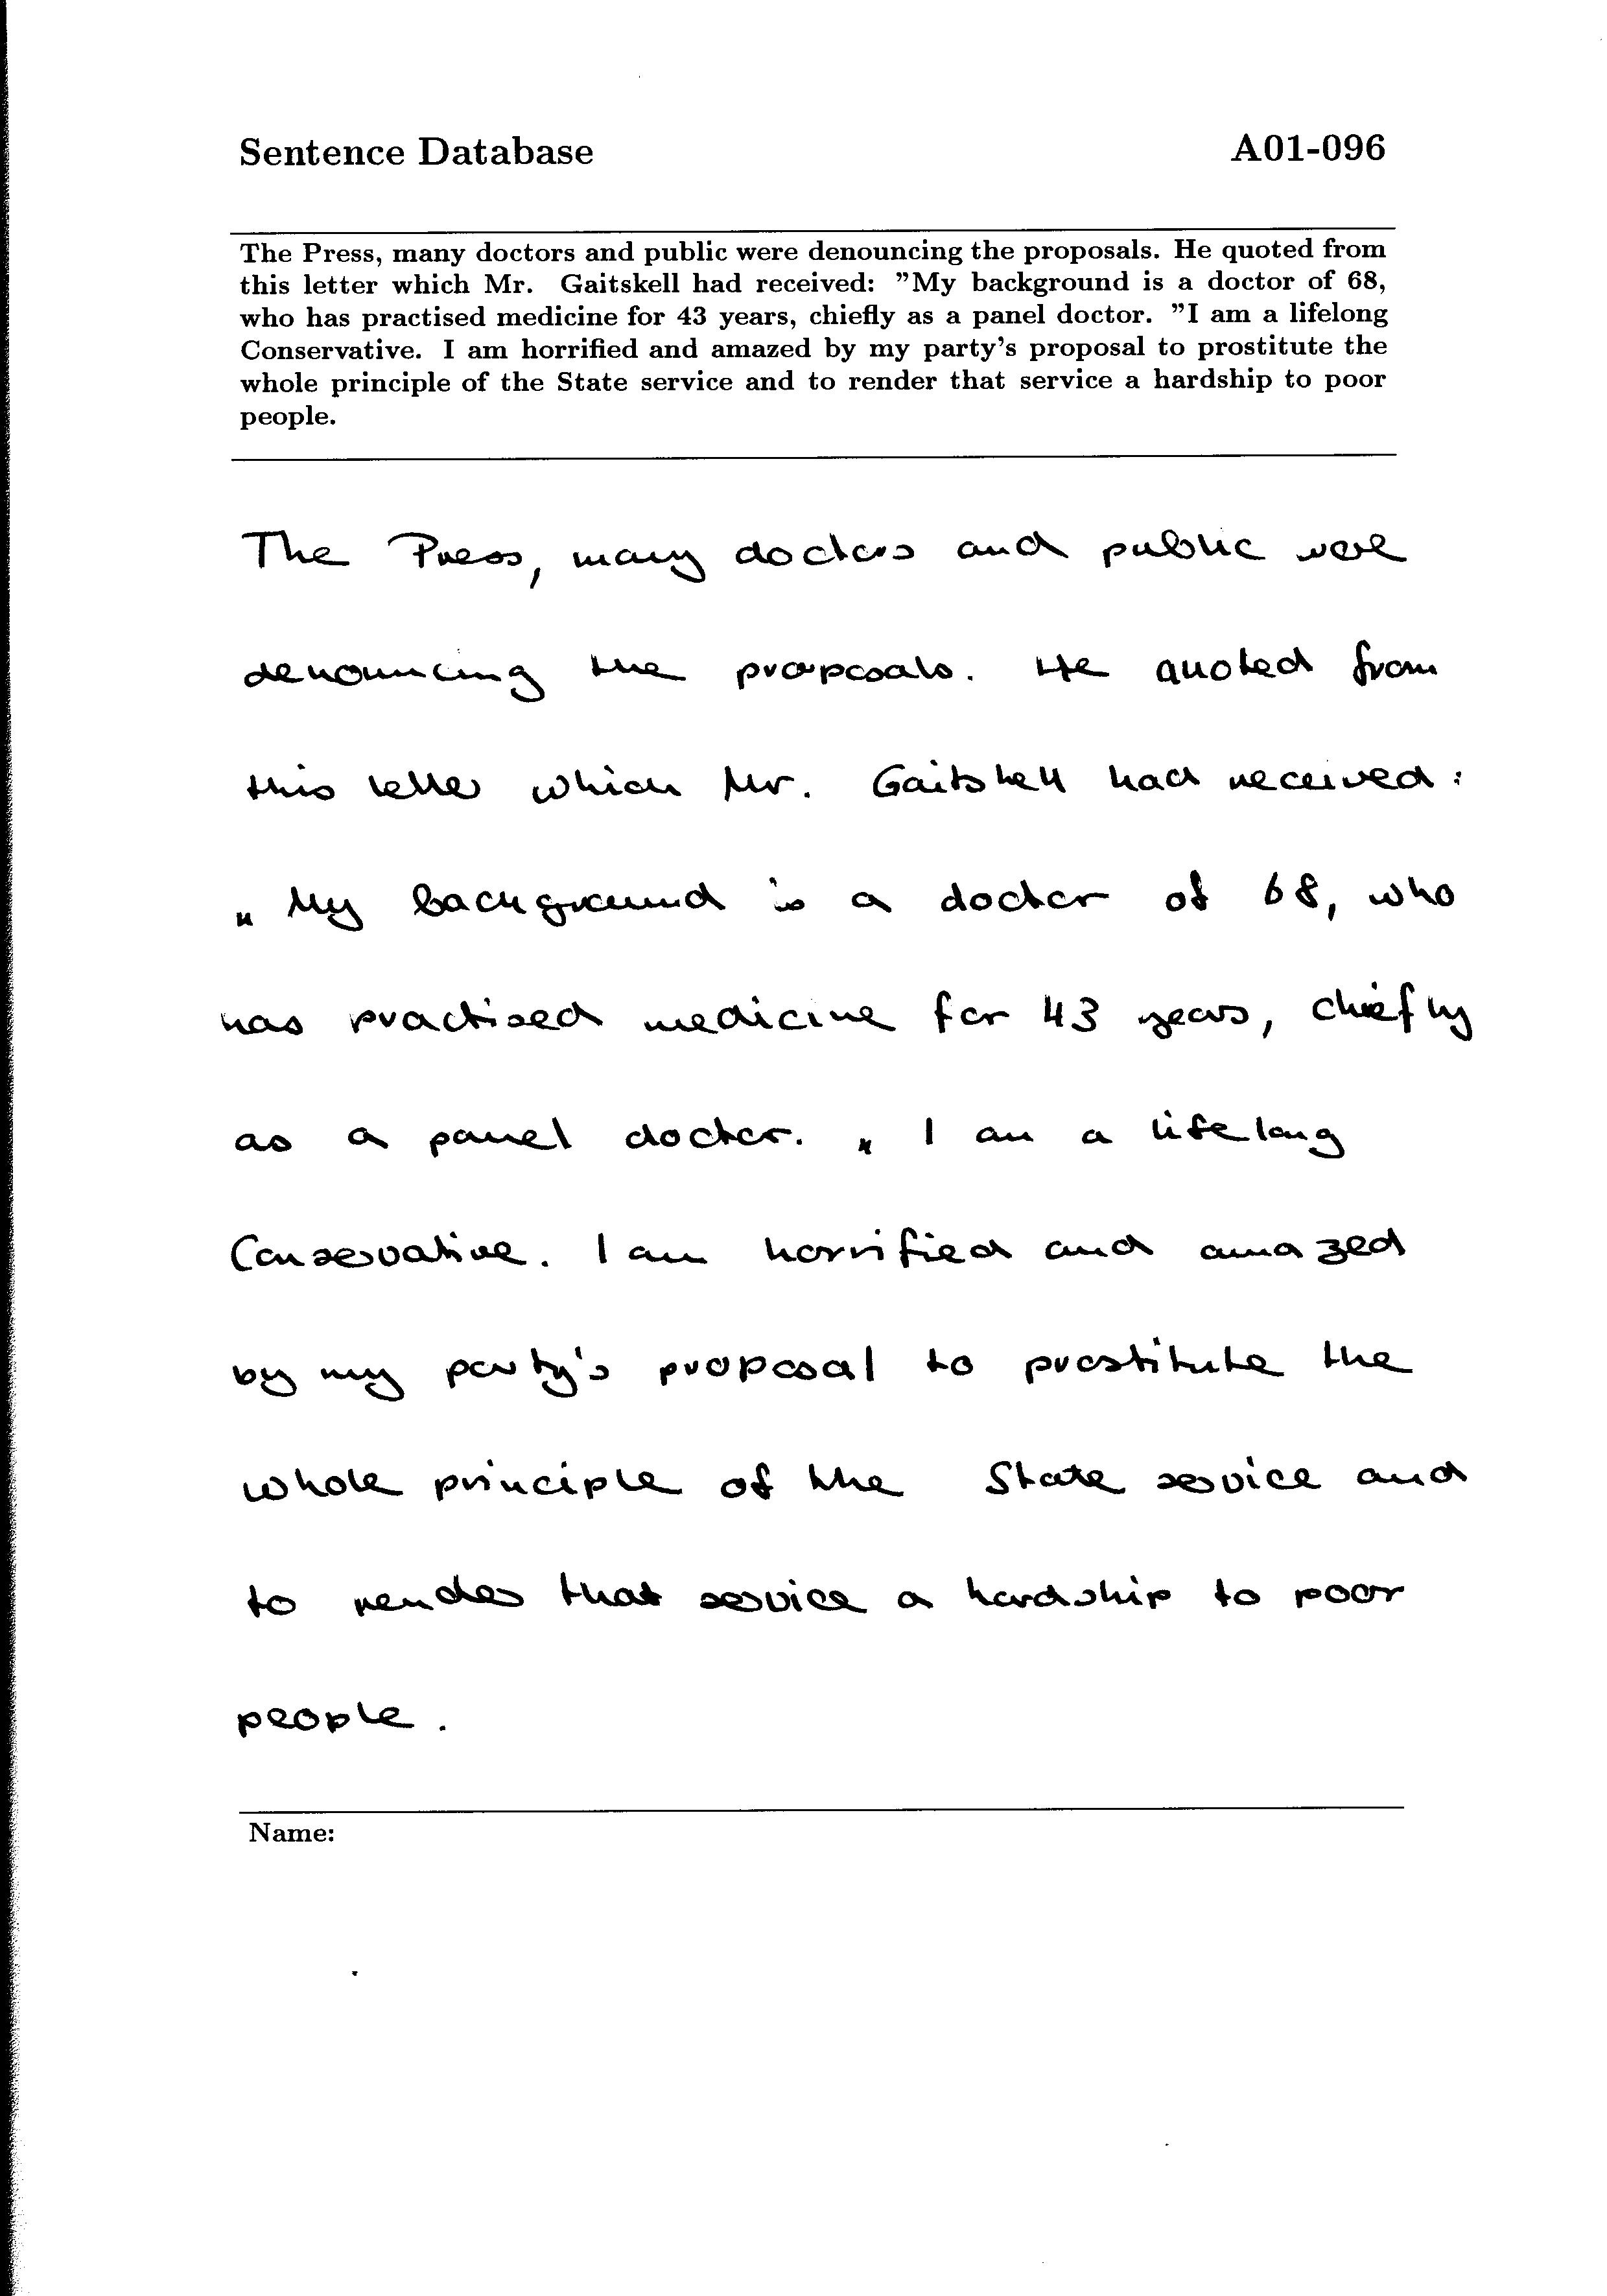 Sentence Database A01-096
The Press, many doctors and public were denouncing the proposals. He quoted from
this letter which Mr. Gaitskell had received: ”My background is a doctor of 68,
who has practised medicine for 43 years, chiefly as a panel doctor. ”I am a lifelong
Conservative. I am horrified and amazed by my party's proposal to prostitute the
whole principle of the State service and to render that service a hardship to poor
people.
The Press, many doctors and public were
denouncing the proposals. He quoted from
this letter which Mr. Gaitskell had received:
„My background is a doctor of 68, who
has practised medicine for 43 years, chiefly
as a panel doctor. „I am a lifelong
Conservative. I am horrified and amazed
by my party's proposal to prostitute the
whole principle of the State service and
to render that service a hardship to poor
people.
Name: